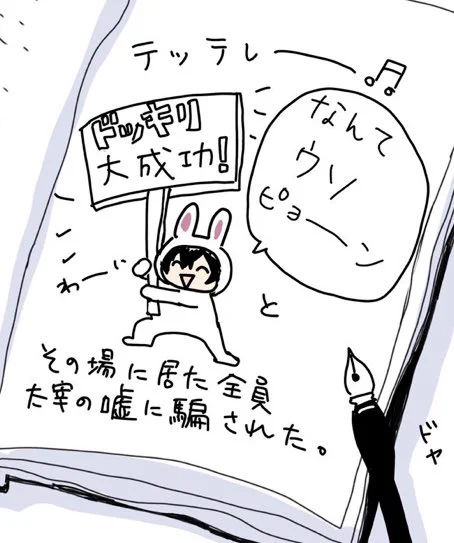 テッテレー
ドッキリ
大成功!
なんて
ウソ
ピョーン
わーい
と
その場に居た全員
太宰の嘘に騙された。
ドヤ